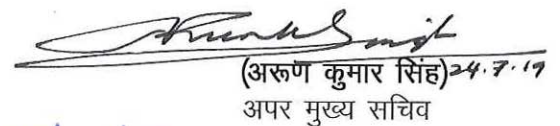 (अरूण कुमार सिंह) 24.7.19
अपर मुख्य सचिव